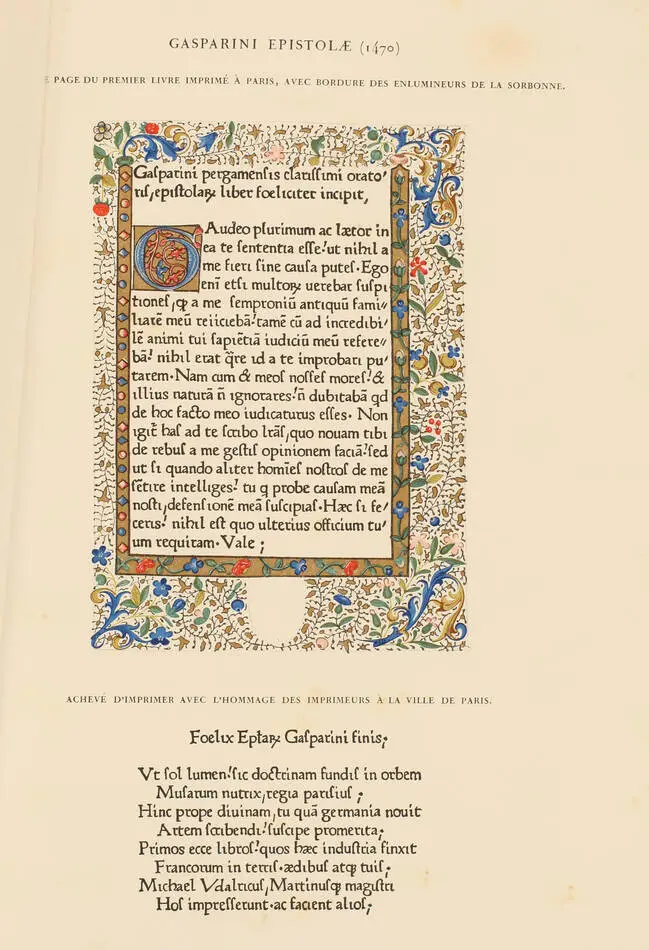 GASPARINI EPISTOLÆ (1470)
E PAGE DU PREMIER LIVRE IMPRIMÉ À PARIS, AVEC BORDURE DES ENLUMINEURS DE LA SORBONNE.
Gaſparini pergamenſis clariſſimi orato/
ris,epiſtolaꝝ liber foeliciter incipit,
GAudeo plurimum ac lætor in
ea te ſententia eſſe.'ut nihil a
me fieri ſine cauſa puteſ·Ego
eni etſi multoꝝ uerebar ſuſpi
tioneſ,ꝙ a me ſemproniū antiquū fami/
liarē meū reiiciebā.'tamē cū ad incredibi/
lē animi tui ſapiētiā iudiciū meū refere//
bā.' nihil erat q̄re id a te improbari pu/
tarem·Nam cum & meoſ noſſeſ moreſ.'&
illius naturā n̄ ignorares.'n̄ dubitabā qd
de hoc facto meo iudicaturus eſſes· Non
igit̃ haſ ad te ſcribo lr̄aſ,quo nouam tibi
de rebuſ a me geſtiſ opinionem faciā.'ſed
ut ſi quando aliter homīeſ noſtroſ de me
ſētire intelligeſ.' tu q probe cauſam meā
noſti,defenſionē meā ſuſcipiaſ·Hæc ſi fe/
ceris.' nihil eſt quo ulterius officium tu/
um requiram·Vale ;
ACHEVÉ D'IMPRIMER AVEC L'HOMMAGE DES IMPRIMEURS À LA VILLE DE PARIS.
Foelix Epl̄aꝝ Gaſparini finis;
Vt ſol lumen.'ſic doctrinam fundiſ in orbem
Muſarum nutrix,regia pariſius ;
Hinc prope diuinam,tu quā germania nouit
Artem ſcribendi.'ſuſcipe promerita;
Primos ecce libroſ.'quoſ hæc induſtria finxit
Francorum in terriſ·ædibuſ atqꝫ tuiſ;
Michael Vdalricuſ,Martinuſqꝫ magiſtri
Hoſ impreſſerunt·ac facient alioſ;